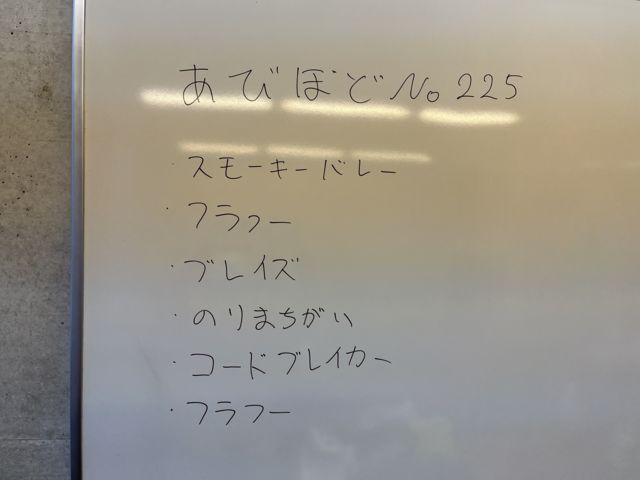 あびぼど No.225
・スモーキーバレー
・フラフー
・ブレイズ
・のりまちがい
・コードブレイカー
・フラフー